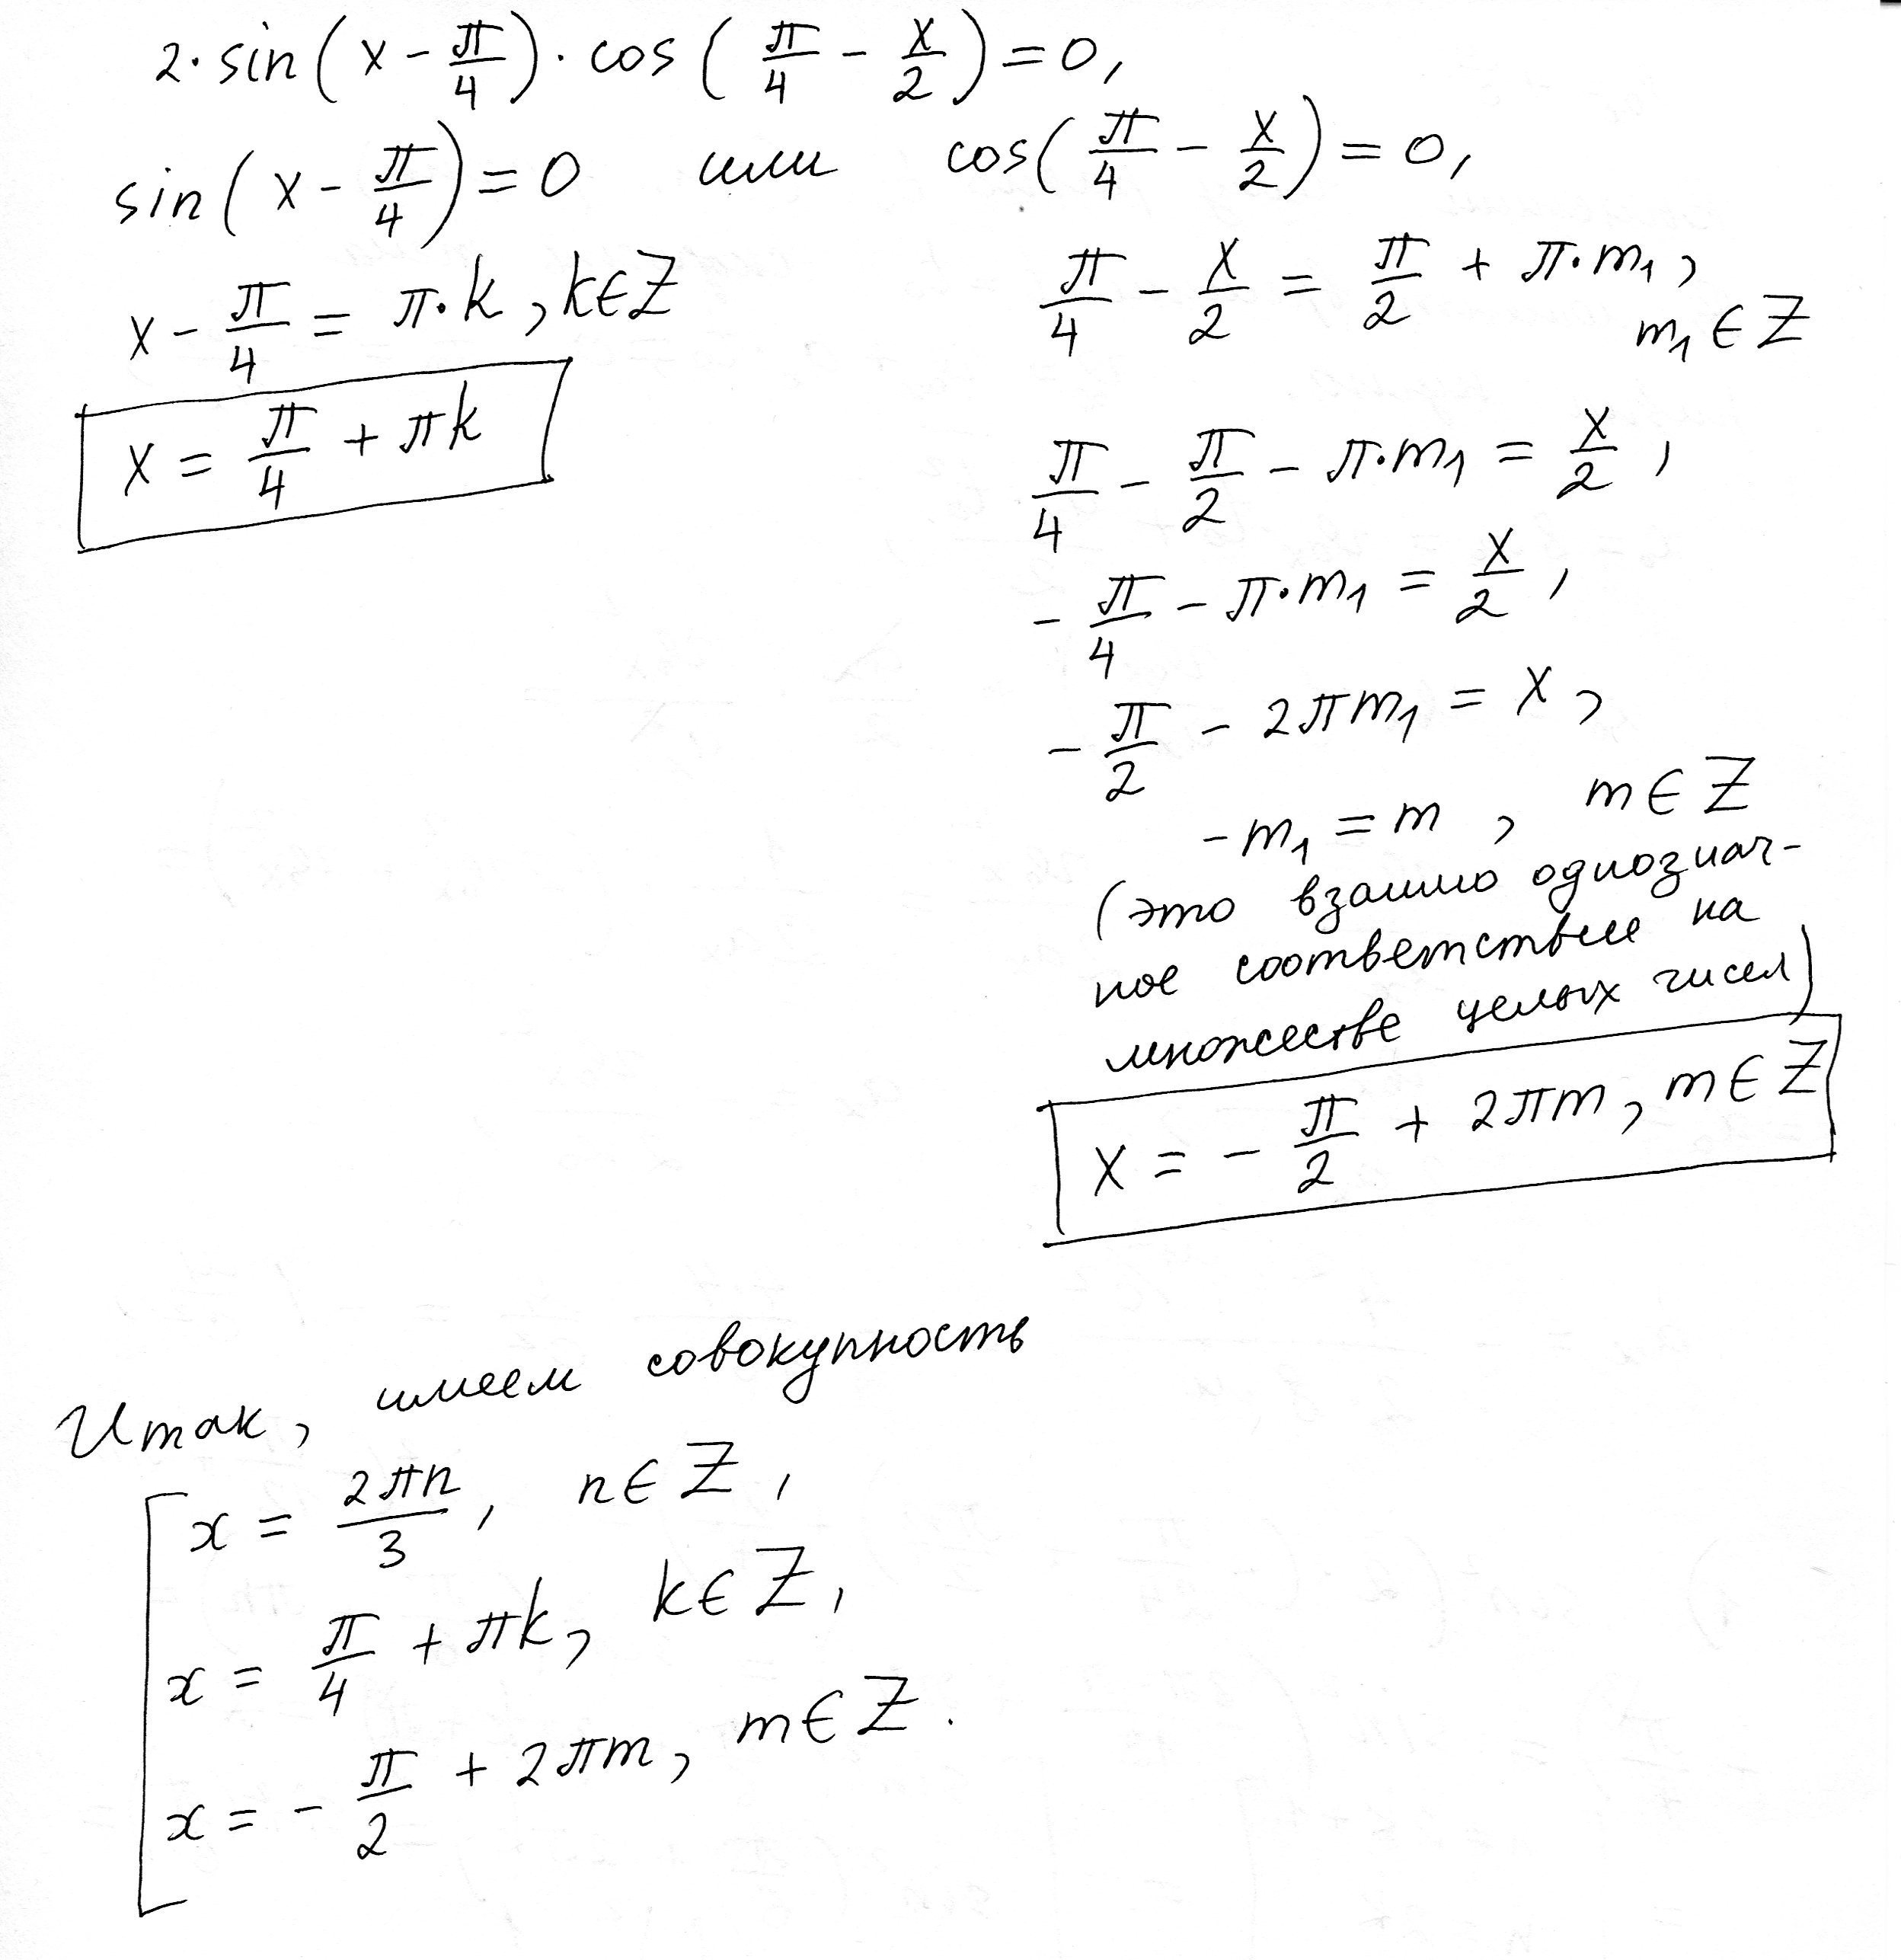 2·sin(x - π/4)·cos(π/4 - x/2) = 0,
sin(x - π/4) = 0 или cos(π/4 - x/2) = 0,
x - π/4 = π·k, k∈Z
x = π/4 + πk
π/4 - x/2 = π/2 + π·m₁,
m₁ ∈ Z
π/4 - π/2 - π·m₁ = x/2,
- π/4 - π·m₁ = x/2,
- π/2 - 2πm₁ = x,
-m₁ = m, m ∈ Z
(это взаимо однознач-
ное соответствие на
множестве целых чисел)
x = - π/2 + 2πm, m ∈ Z
Итак, имеем совокупность
x = 2πn/3, n ∈ Z,
x = π/4 + πk, k ∈ Z,
x = - π/2 + 2πm, m ∈ Z.